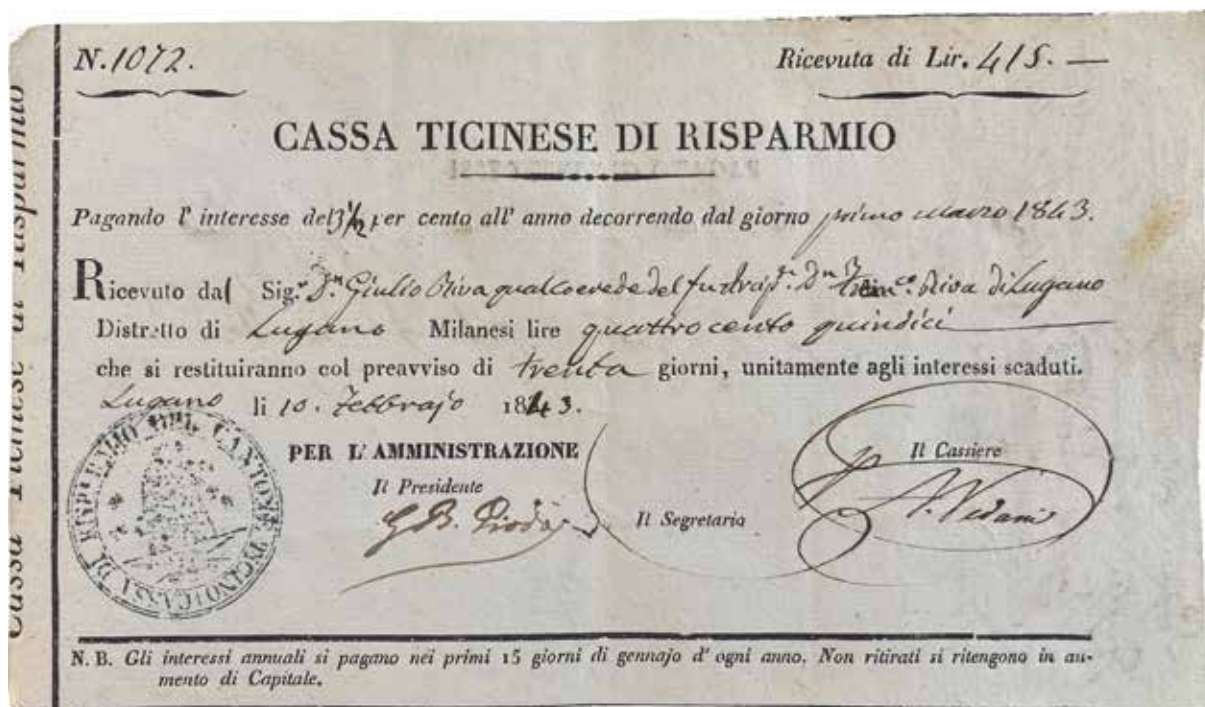 N. 1072.
Ricevuta di Lir. 415. —
CASSA TICINESE DI RISPARMIO
Pagando l' interesse del 3 1/2 per cento all' anno decorrendo dal giorno primo marzo 1843.
Ricevuto dal Sig.r D.n Giulio Riva qual coerede del fu D.n Riva di Lugano
Distretto di Lugano Milanesi lire quattrocento quindici
che si restituiranno col preavviso di trenta giorni, unitamente agli interessi scaduti.
Lugano li 10. Febbrajo 1843.
PER L' AMMINISTRAZIONE
Il Presidente
G. B. Pioda
Il Segretario
Il Cassiere
A. Vedani
CASSA DI RISPARMIO DEL CANTONE TICINO
N. B. Gli interessi annuali si pagano nei primi 15 giorni di gennajo d' ogni anno. Non ritirati si ritengono in au-
mento di Capitale.
Cassa Ticinese di Risparmio